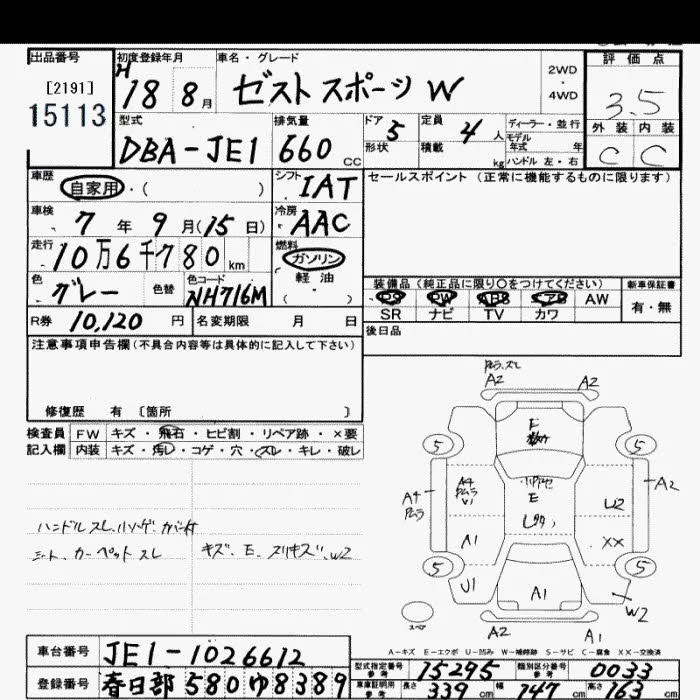 出品番号 初度登録年月 車名・グレード 評価点
[2191] H 2WD
15113 18 8月 ゼスト スポーツ W ・ 4WD 3.5
型式 排気量 ドア 5 定員 4人 ディーラー・並行 外装 内装
DBA-JE1 660 CC 形状 積載 kg モデル年式 年 ハンドル 左・右 C C
車歴 自家用・( ) シフト IAT セールスポイント (正常に機能するものに限ります)
車検 7年 9月(15日) 冷房 AAC
走行 10万6千780km 燃料 ガソリン
軽油
色 グレー 色替 色コード NH716M ( )
装備品 (純正品に限り○をつけてください) 新車保証書
PS PW ABS エアB AW 有・無
SR ナビ TV カワ
R券 10,120円 名変期限 月 日 後日品
注意事項申告欄(不具合内容等は具体的に記入して下さい)
修復歴 有 〔箇所 〕
検査員 FW キズ・飛石・ヒビ割・リペア跡・×要
記入欄 内装 キズ・汚レ・コゲ・穴・スレ・キレ・破レ
ハンドルスレ
シート、カーペットスレ
キズ、E、スリキズ、W2
A2 A2
E
5 5
A4 ムラ A4 ムラ E A2
U2
A1 XX
5 5
U1 A1 W2
スペア A2 A1
A-キズ E-エクボ U-凹み W-補修跡 S-サビ C-腐食 XX-交換済
車台番号 JE1-1026612
型式指定番号 参考 15295 類別区分番号 参考 0033
登録番号 春日部 580 ゆ 8389
車庫証明用 参考 長さ 339cm 幅 147cm 高さ 163cm